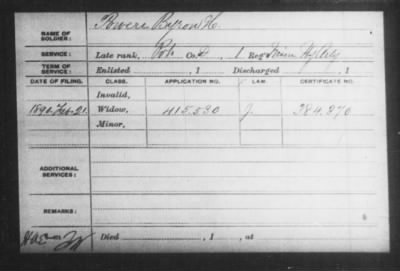 NAME OF SOLDIER: Powers Byron H.
SERVICE: Late rank, Pvt. Co. 1 Reg
TERM OF SERVICE: Enlisted , 1 Discharged , 1
DATE OF FILING. CLASS. APPLICATION NO. LAW. CERTIFICATE NO.
Invalid,
1890 Feb. 21. Widow, 415.530 J 384.370
Minor,
ADDITIONAL SERVICES:
REMARKS:
Died , 1 , at